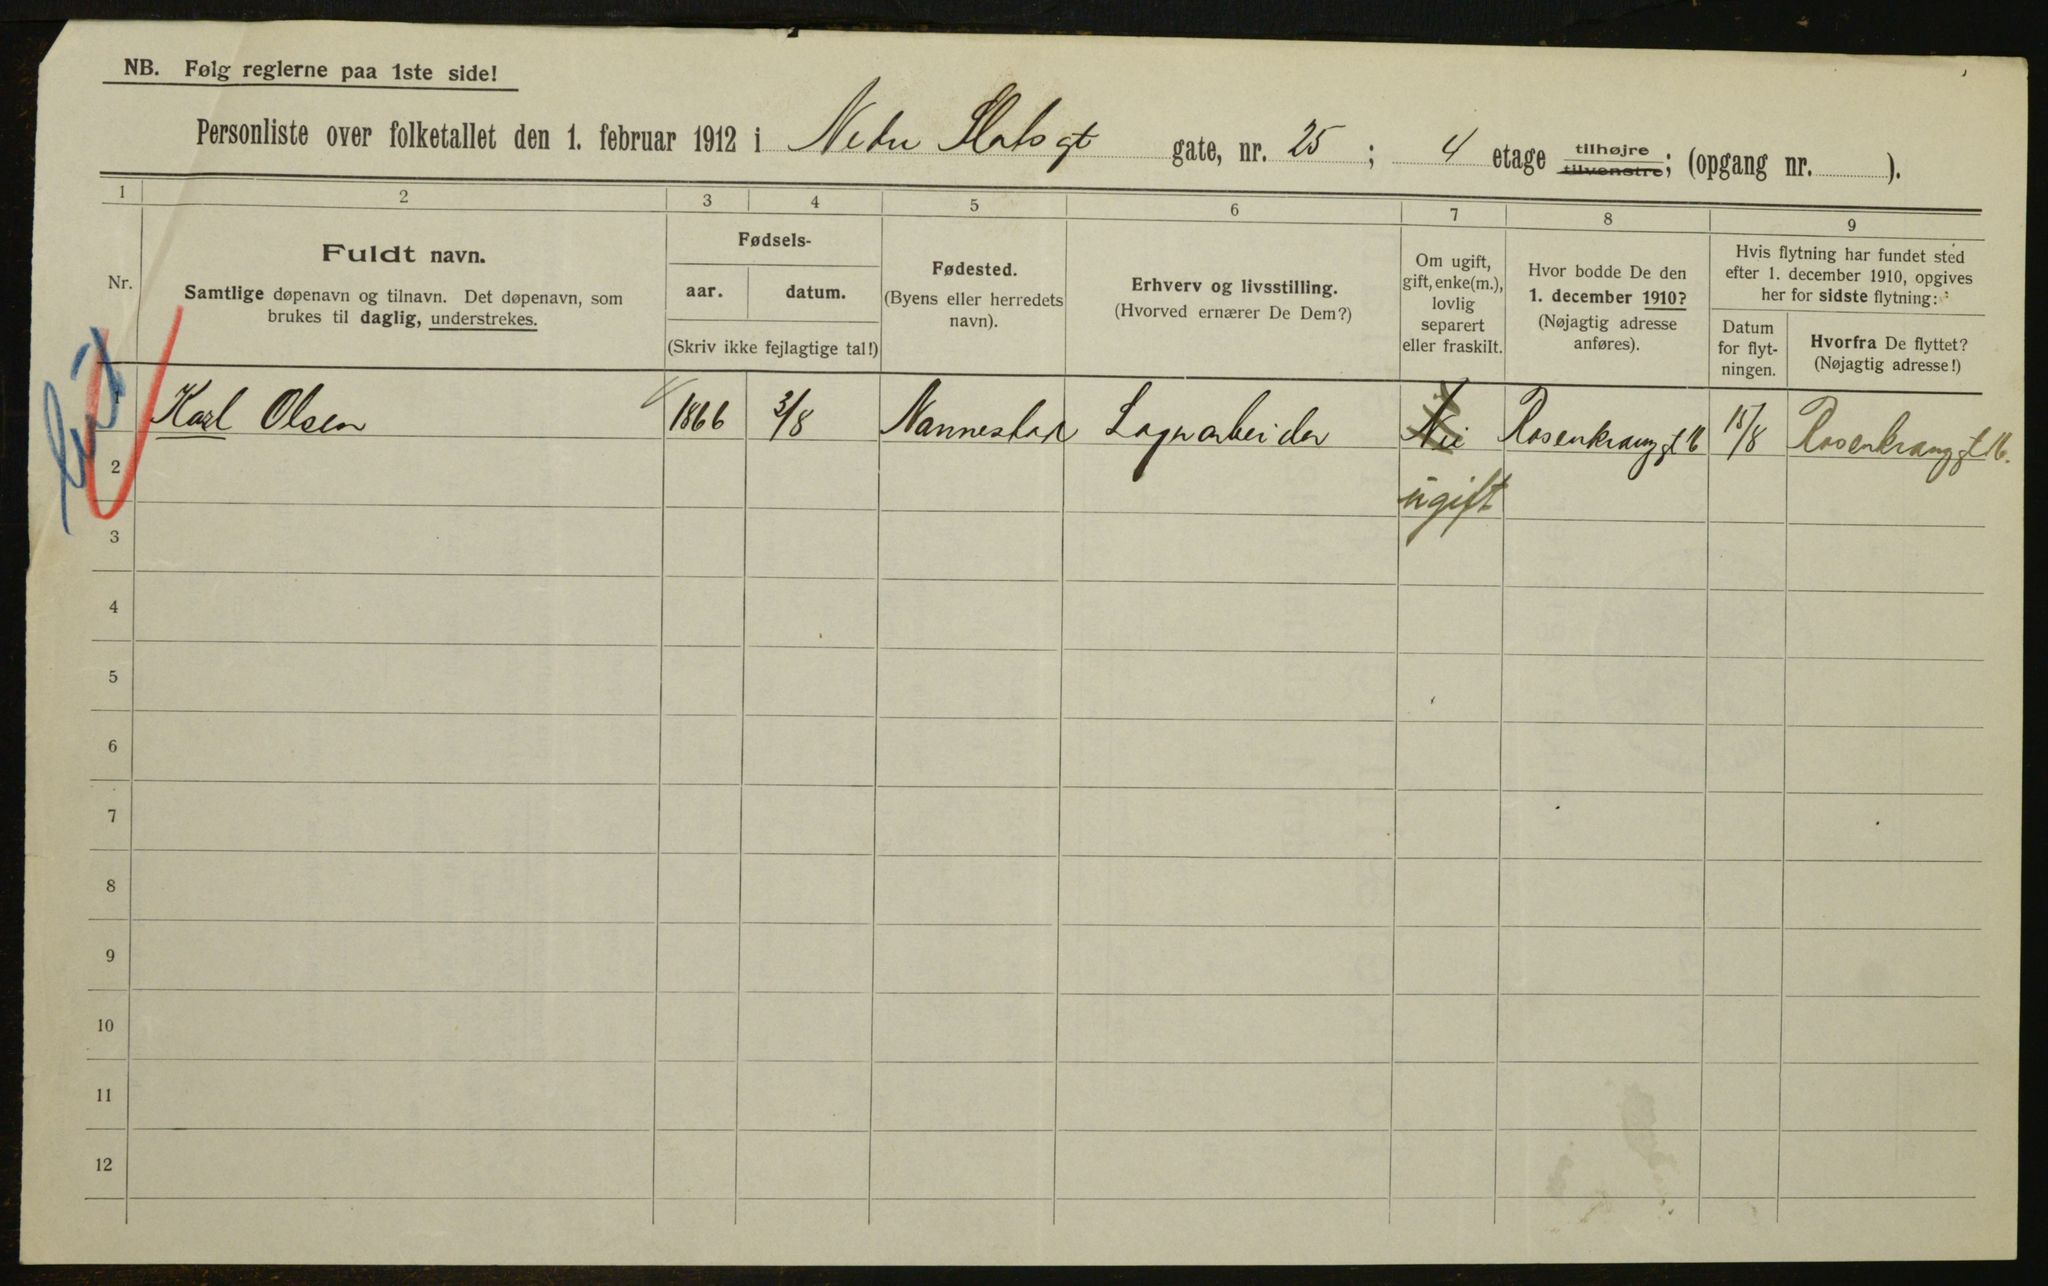 NB. Følg reglerne paa 1ste side!
Personliste over folketallet den 1. februar 1912 i Nedre Slotsgt gate, nr. 25; 4 etage tilhøjre tilvenstre; (opgang nr. ).
1 2 3 4 5 6 7 8 9
Nr.
Fuldt navn.
Samtlige døpenavn og tilnavn. Det døpenavn, som
brukes til daglig, understrekes.
Fødsels-
aar. datum.
(Skriv ikke fejlagtige tal!)
Fødested.
(Byens eller herredets
navn).
Erhverv og livsstilling.
(Hvorved ernærer De Dem?)
Om ugift,
gift, enke(m.),
lovlig
separert
eller fraskilt.
Hvor bodde De den
1. december 1910?
(Nøjagtig adresse
anføres).
Hvis flytning har fundet sted
efter 1. december 1910, opgives
her for sidste flytning:
Datum
for flyt-
ningen.
Hvorfra De flyttet?
(Nøjagtig adresse!)
1 Karl Olsen 1866 3/8 Nannestad Lagerarbeider Nei Rosenkranzgt 16 15/8 Rosenkranzgt 16.
2 ugift
3
4
5
6
7
8
9
10
11
12